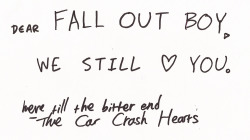 DEAR FALL OUT BOY,
WE STILL ♡ YOU.
here till the bitter end
-The Car Crash Hearts